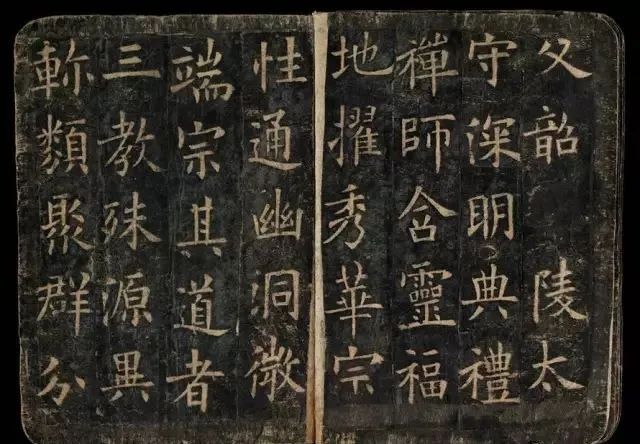 父韶 陵太
守深明典禮
禪師含靈福
地擢秀華宗
性通幽洞微
端宗其道者
三教殊源異
軫類聚群分